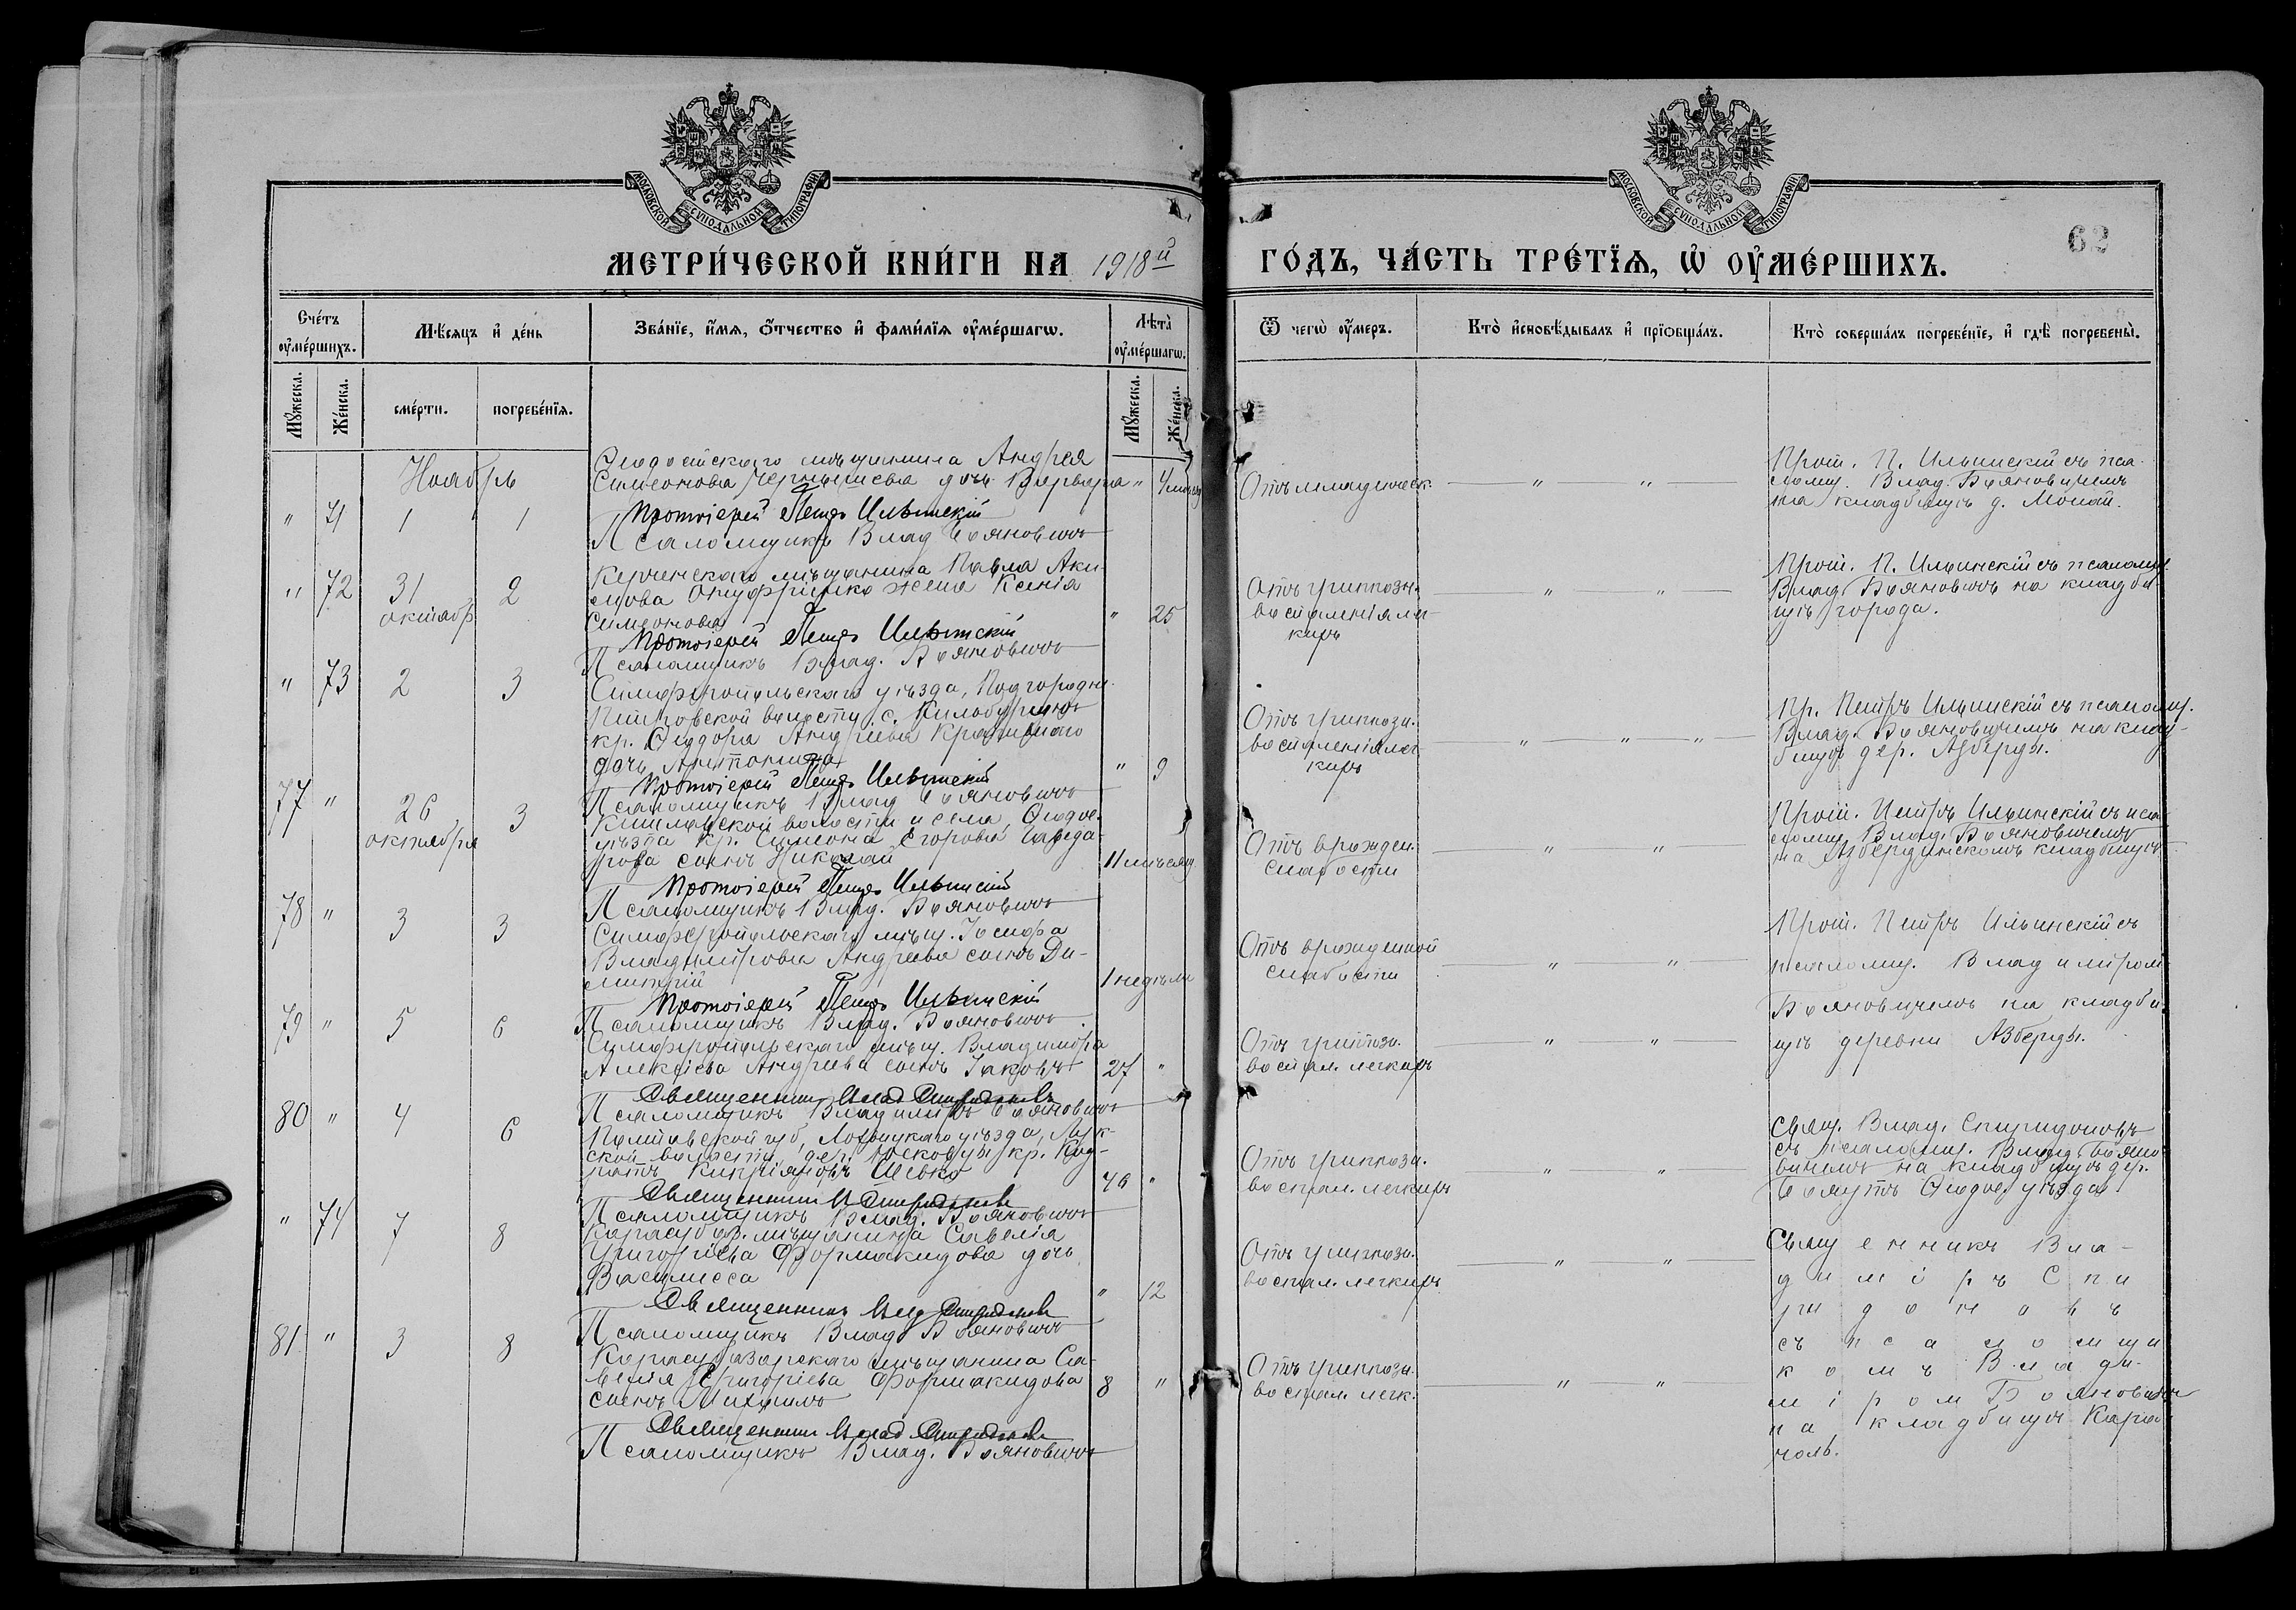 МОСКОВСКОЙ СѴНОДАЛЬНОЙ ТИПОГРАФІИ
МОСКОВСКОЙ СѴНОДАЛЬНОЙ ТИПОГРАФІИ
62
МЕТРИ́ЧЕСКОЙ КНИ́ГИ НА 1918й ГО́ДЪ, ЧА́СТЬ ТРЕ́ТЇѦ, Ѡ ОУ҆МЕ́РШИХЪ.
Сче́тъ оу҆ме́ршихъ.
Мѣ́сяцъ и҆ де́нь
Зва́нїе, и҆́мѧ, ѻ҆́тчество и҆ фами́лїѧ оу҆ме́ршагѡ.
Лѣта̀ оу҆ме́ршагѡ.
Ѿ чегѡ̀ оу҆́меръ.
Кто̀ и҆сповѣ́дывалъ и҆ прїѡбща́лъ.
Кто̀ соверша́лъ погребе́нїе, и҆ гдѣ̀ погребены̀.
Мꙋ́жеска.
Же́нска.
сме́рти.
погребе́нїѧ.
Мꙋ́жеска.
Же́нска.
Ноябрь
" 71 1 1
Ѳеодосійскаго мѣщанина Андрея
Симеонова Чернышева дочь Варвара "
Протоіерей Петръ Ильинскій
Псаломщикъ Влад Бояновичъ
Отъ младенческ. " "
Прот. П. Ильинскій съ пса-
ломщ. Влад. Бояновичемъ
на кладбищѣ д. Монай.
" 72 31 октябр. 2
Керченскаго мѣщанина Павла Аки-
мова Онуфрienko жена Ксенія
Симеонова " 25
Протоіерей Петръ Ильинскій
Псаломщикъ Влад. Бояновичъ
Отъ гриппозн.
воспаленія лег-
кихъ " "
Прот. П. Ильинскій съ псаломщ.
Влад. Бояновичъ на кладби-
щѣ города.
" 73 2 3
Симферопольскаго уѣзда, Подгородне-
Петровской волости с. Кильбурунъ
кр. Ѳеодора Андреева
дочь Антонина " 9
Протоіерей Петръ Ильинскій
Псаломщикъ Влад Бояновичъ
Отъ гриппозн.
воспаленія лег-
кихъ " " "
Пр. Петръ Ильинскій съ псаломщ.
Влад. Бояновичемъ на клад-
бищѣ дер. Азберды.
77 " 26 октября 3
волости и села Ѳеодос.
уѣзда кр. Симеона Егорова
сынъ Николай 11 мѣсяц.
Протоіерей Петръ Ильинскій
Псаломщикъ Влад. Бояновичъ
Отъ врожден.
слабости " "
Прот. Петръ Ильинскій съ пса-
ломщ. Влад. Бояновичемъ
на Азбердинскомъ кладбищѣ
78 " 3 3
Симферопольскаго мѣщ. Іосифа
Владимірова Андреева сынъ Ди-
митрій 1 недѣли
Протоіерей Петръ Ильинскій
Псаломщикъ Влад. Бояновичъ
Отъ врожденной
слабости " "
Прот. Петръ Ильинскій съ
псаломщ. Владиміром
Бояновичемъ на кладби-
щѣ деревни Азберды.
79 " 5 6
Симферопольскаго мѣщ. Владиміра
Алексіева Андреева сынъ Іаковъ 27 "
Священникъ Влад Спиридоновъ
Псаломщикъ Владиміръ Бояновичъ
Отъ гриппозн.
воспал. легкихъ " "
80 " 4 6
Полтавской губ, Лохвицкаго уѣзда,
ской волости, дер. кр. Код-
ратъ Кипріановъ 46 "
Священникъ В Спиридоновъ
Псаломщикъ Влад. Бояновичъ
Отъ гриппозн.
воспал. легкихъ " "
Свящ. Влад. Спиридоновъ
съ псаломщ. Влад. Бояно-
вичемъ на кладбищѣ дер.
Ѳеодос. уѣзда
" 74 7 8
Карасубаз. мѣщанина Савелія
Григоріева Формакидова дочь
Василисса " 12
Священникъ Влад Спиридоновъ
Псаломщикъ Влад. Бояновичъ
Отъ гриппозн.
воспал. легкихъ " "
Священникъ Вла-
диміръ Спи
ридоновъ
съ псаломщи
комъ Влади-
міром Бояновичем
на кладбищѣ Кара-
чоль.
81 " 3 8
Карасубазарскаго мѣщанина Са-
велія Григоріева Формакидова 8 "
сынъ Михаилъ
Священникъ Влад Спиридоновъ
Псаломщикъ Влад. Бояновичъ
Отъ гриппозн.
воспал. легк. " "